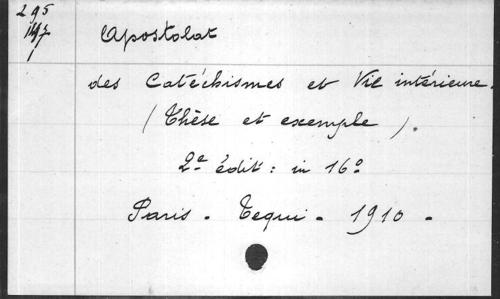 295
Apostolat
des Catéchismes et Vie intérieure.
(Thèse et exemple).
2e édit: in 16o
Paris - Tequi - 1910 -